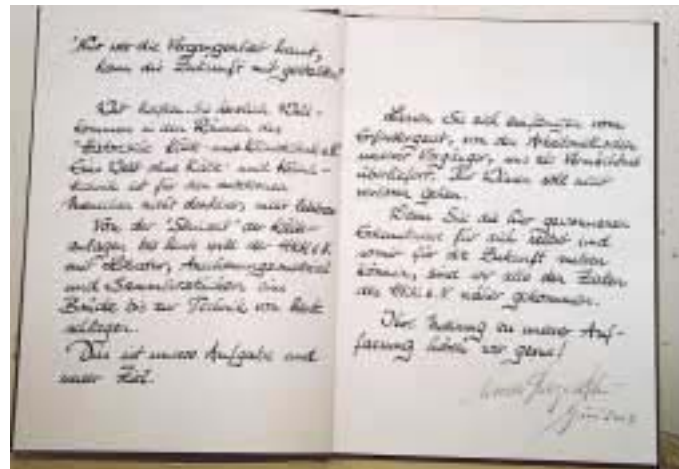 "Nur wer die Vergangenheit kennt,
kann die Zukunft mit gestalten"
Wir heißen Sie herzlich Will-
kommen in den Räumen des
"Historische Kälte- und Klimatechnik e.V.
Eine Welt ohne Kälte- und Klima-
technik ist für den modernen
Menschen nicht denkbar,
Von der "Steinzeit" der Kälte-
anlagen bis heute will der HKK e.V.
mit Literatur, Anschauungsmaterial
und Sammlerstücken eine
Brücke bis zur Technik von heute
schlagen.
Das ist unsere Aufgabe und
unser Ziel.
Lassen Sie sich empfangen vom
Erfindergeist, von den Arbeitsmethoden
unserer Vorgänger, uns als Vermächtnis
überliefert. Ihr Wissen soll nicht
verloren gehen.
Wenn Sie die hier gewonnenen
Erkenntnisse für sich selbst und
somit für die Zukunft nutzen
können, sind wir alle den Zielen
des HKK e.V. näher gekommen.
Ihre Meinung zu unserer Auf-
fassung hören wir gerne!